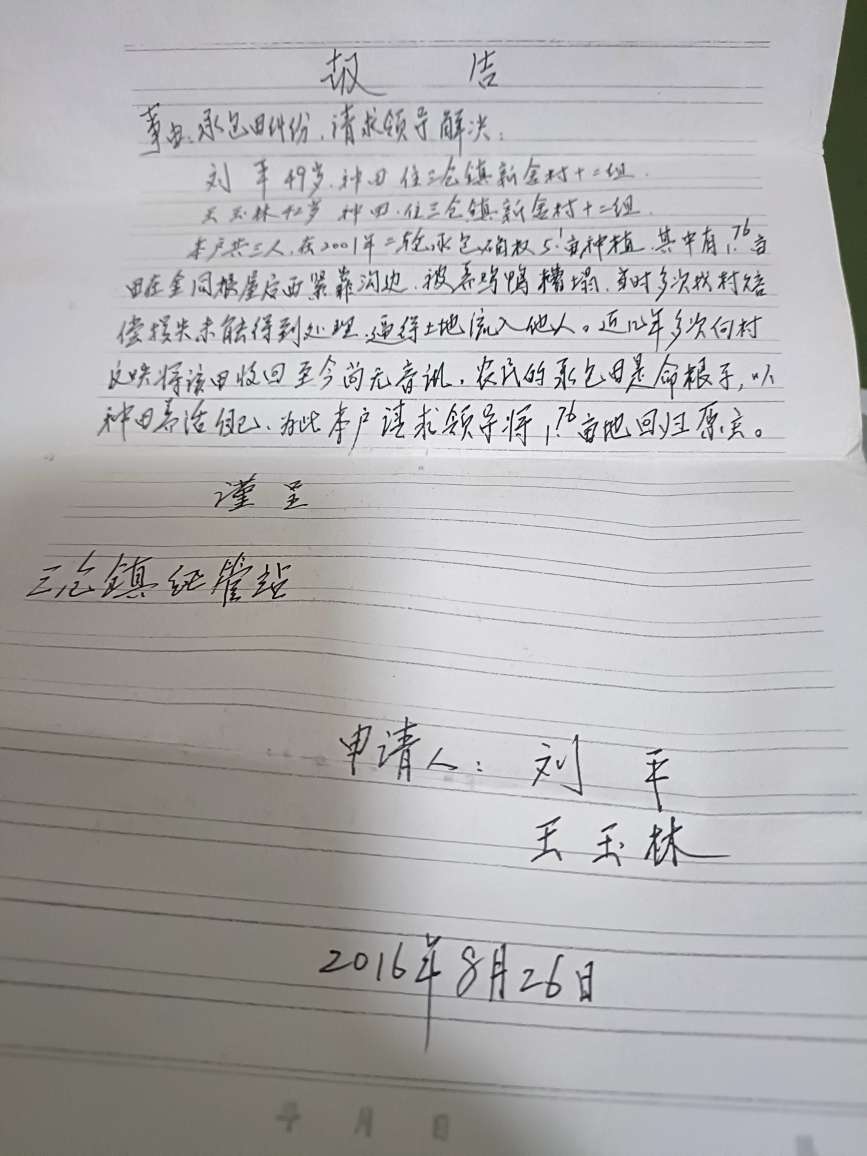 报 告
事由：承包田纠纷，请求领导解决：
刘 平 49岁，种田 住三仓镇新金村十二组．
王玉林42岁 种田．住三仓镇新金村十二组．
本户共三人，在2001年二轮承包确权5.1亩种植．其中有1.76亩
田在金同根屋后面紧靠沟边．被养鸡鸭糟塌，当时多次找村赔
偿损失未能得到处理．逼得土地流入他人。近几年多次向村
反映将该田收回至今尚无音讯，农民的承包田是命根子，以
种田养活自己、为此本户请求领导将1.76亩地回归原主。
谨 呈
三仓镇经管站
申请人： 刘 平
王玉林
2016年8月26日
年 月 日